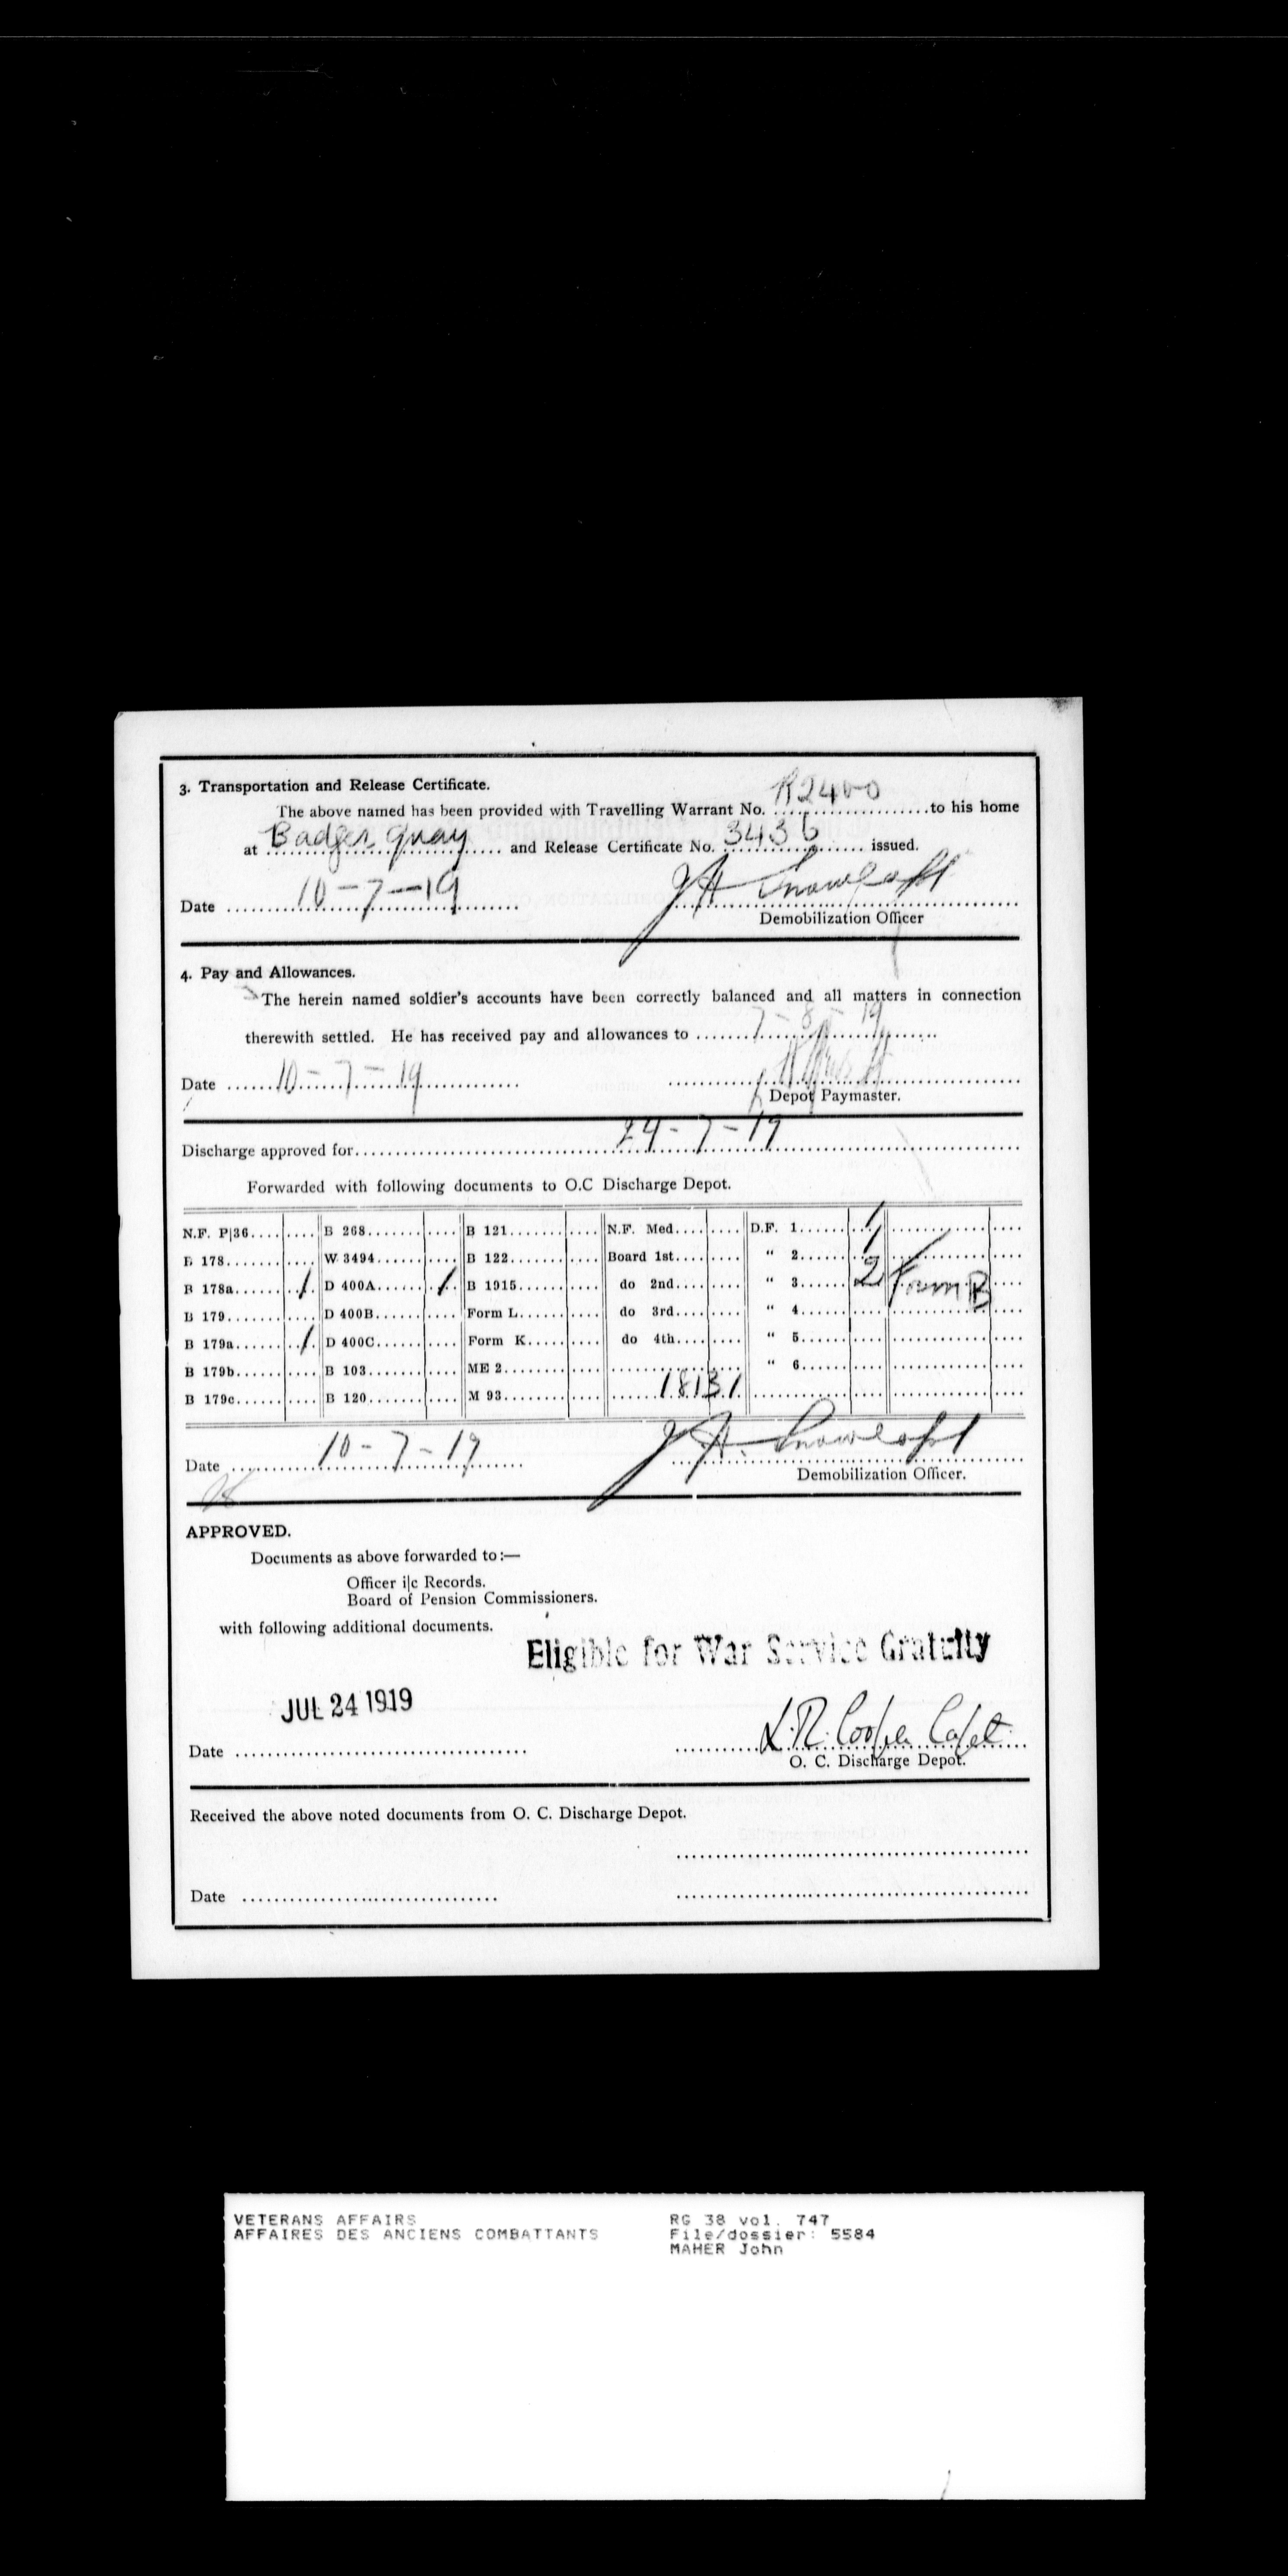 3. Transportation and Release Certificate.
The above named has been provided with Travelling Warrant No. R2400 to his home
at Badger Quay and Release Certificate No. 3436 issued.
Date 10-7-19
Demobilization Officer
4. Pay and Allowances.
The herein named soldier's accounts have been correctly balanced and all matters in connection
therewith settled. He has received pay and allowances to 7-8-19
Date 10-7-19
Depot Paymaster.
Discharge approved for 24-7-19
Forwarded with following documents to O.C Discharge Depot.
N.F. P|36 B 268 B 121 N.F. Med. D.F. 1 1
B 178 W 3494 B 122 Board 1st " 2 1
B 178a 1 D 400A 1 B 1915 do 2nd " 3 2 Form B
B 179 D 400B Form L do 3rd " 4
B 179a 1 D 400C Form K do 4th " 5
B 179b B 103 ME 2 " 6
B 179c B 120 M 93 18131
Date 10-7-19
Demobilization Officer.
APPROVED.
Documents as above forwarded to:—
Officer i|c Records.
Board of Pension Commissioners.
with following additional documents.
Eligible for War Service Gratuity
JUL 24 1919
Date L.R. Cooper Capt
O. C. Discharge Depot.
Received the above noted documents from O. C. Discharge Depot.
Date
VETERANS AFFAIRS RG 38 vol. 747
AFFAIRES DES ANCIENS COMBATTANTS File/dossier: 5584
MAHER John